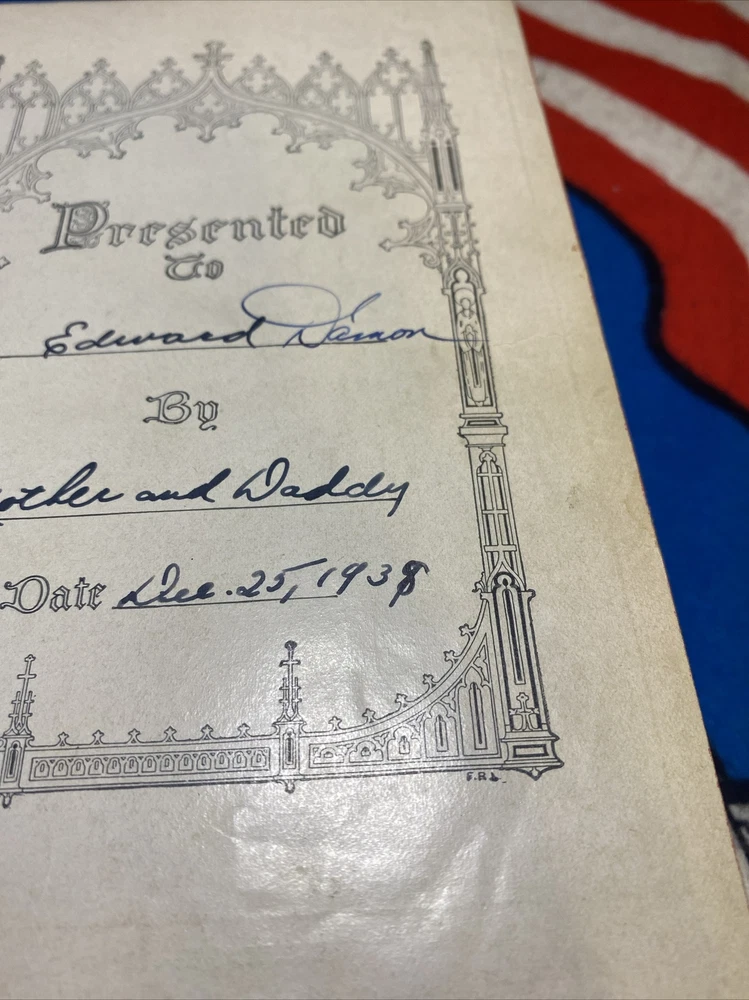 Presented
To
Edward Damon
By
other and Daddy
Date Dec. 25, 1938